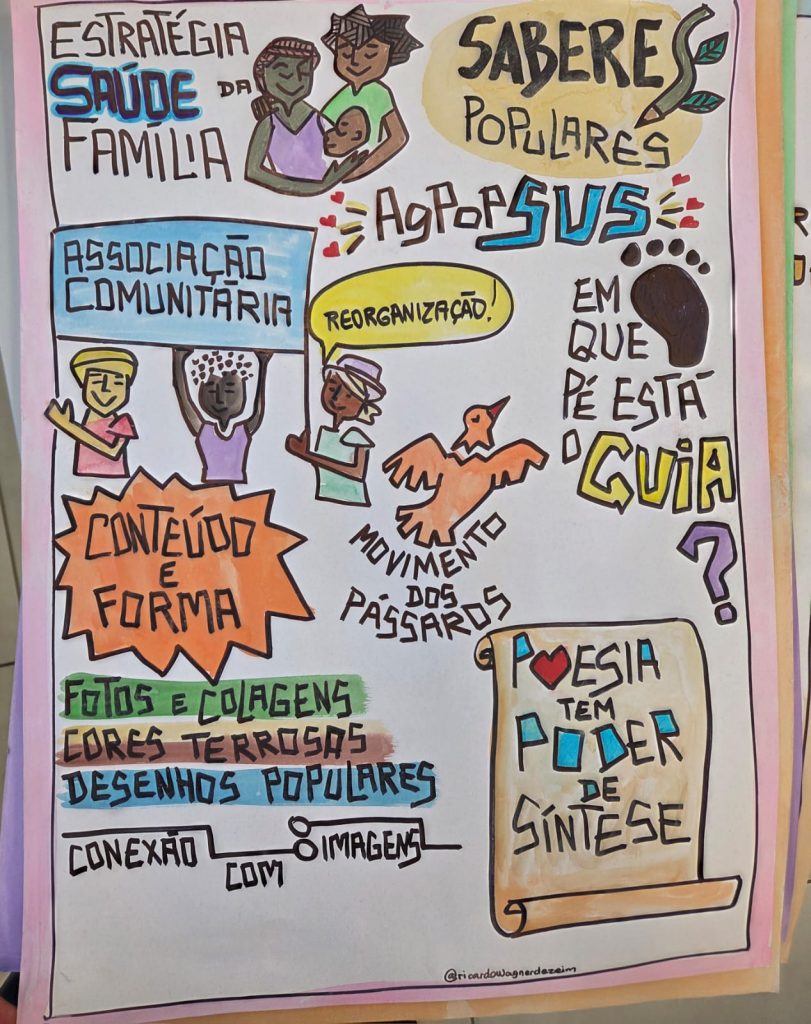 ESTRATÉGIA
SAÚDE DA
FAMÍLIA
SABERES
POPULARES
AgPopSUS
ASSOCIAÇÃO
COMUNITÁRIA
REORGANIZAÇÃO!
EM
QUE
PÉ ESTÁ
O GUIA
?
CONTEÚDO
E
FORMA
MOVIMENTO
DOS
PÁSSAROS
FOTOS E COLAGENS
CORES TERROSAS
DESENHOS POPULARES
CONEXÃO
COM
IMAGENS
POESIA
TEM
PODER
DE
SÍNTESE
@ricardowagnerdezeim